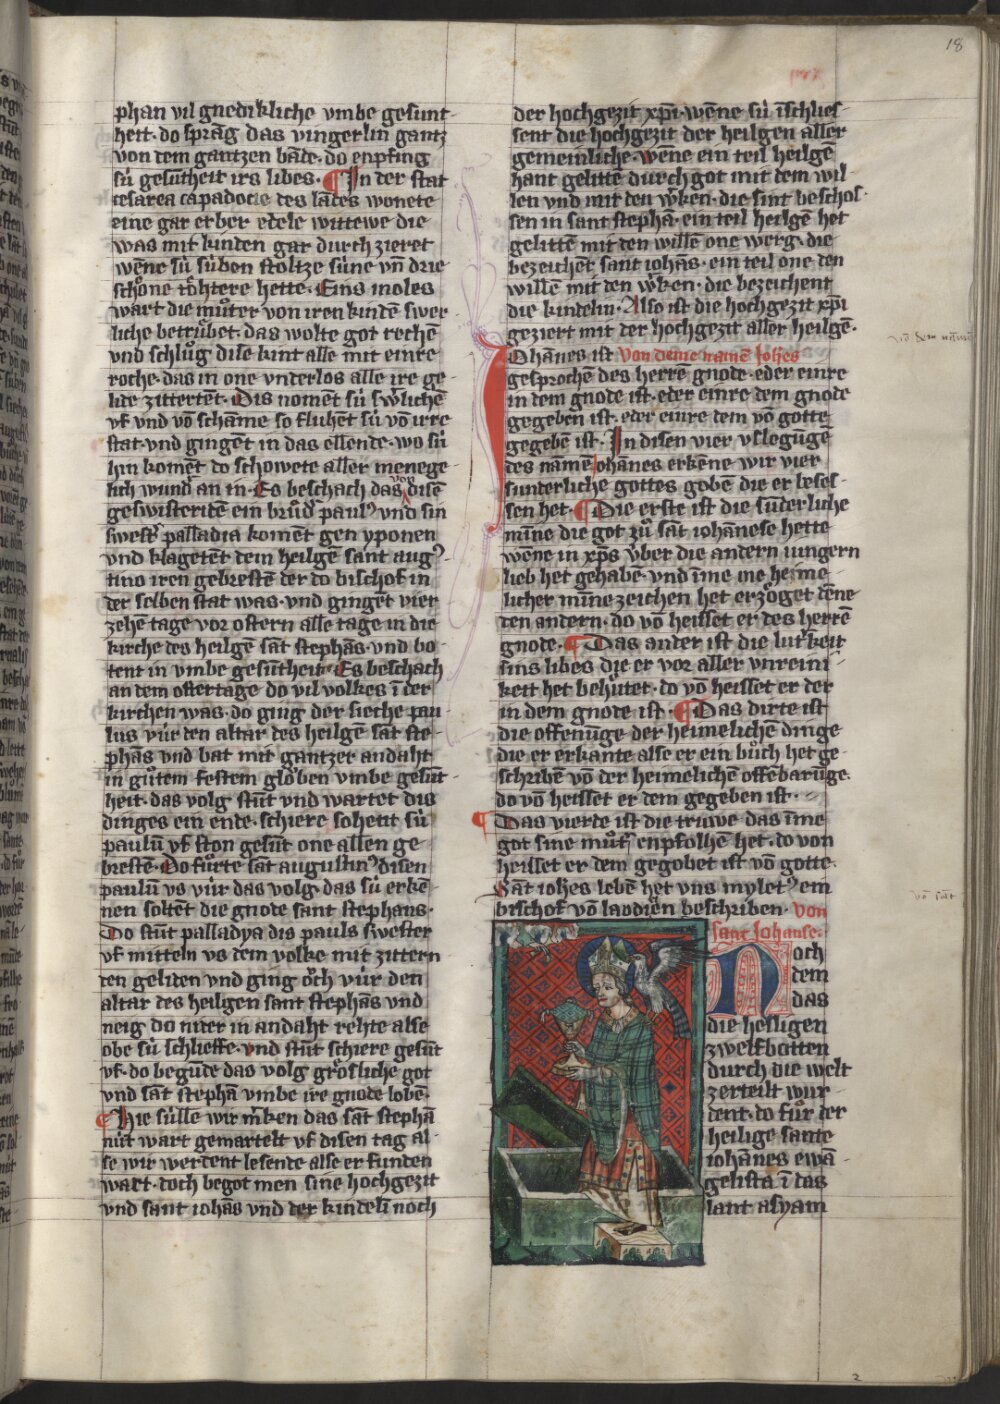 18
phan vil gnedikliche vmbe gesunt
heit · do sprāg das vingerlin gantz
von dem gantzen bāde · do enpfing
sú gesūtheit irs libes · ¶ In der stat
cesarea capadocie des lādes wonete
eine gar erber edele wittewe die
was mit kinden gar durch zieret
wēne sú súben stoltze súne vn̄ drie
schȯne tȯhtere hette · Eins moles
wart die můter von iren kindē swer
liche betrůbet · das wolte got rechē
vnd schlůg dise kint alle mit einre
roche · das in one vnderlos alle ire ge
lide zittertēt · Dis nomēt sú swͤlichē
vf vnd vō schāme so fluhēt sú vō irre
stat · vnd gingēt in das ellende · wo sú
hin komēt do schowete aller menege
lich wundͤ an in · Es beschach das vō disē
geswisteridē ein brůdͤ paulꝰ vnd sin
swestͤ palladia komēt gen yponen
vnd klagetēt dem heilgē sant augꝰ
tino iren gebrestē der do bischof in
der selben stat was · vnd gingēt vier
zehē tage vor ostern alle tage in die
kirche des heilgē sāt stephās · vnd bo
tent in vmbe gesūtheit · Es beschach
an dem ostertage do vil volkes ī der
kirchen was · do ging der sieche pau
lus vúr den altar des heilgē sāt ste
phās vnd bat mit gantzer andaht
in gůtem festem glȯben vmbe gesūt
heit · das volg stūt vnd wartet dis
dinges ein ende · schiere sohent sú
paulū vf ston gesūt one allen ge
brestē · Do fůrte sāt augustinꝰ disen
paulū vs vúr das volg · das sú erkē
nen soltēt die gnode sant stephans ·
Do stūt palladya dis pauls swester
vf mitteln vs dem volke mit zittern
den geliden vnd ging ȯch vúr den
altar des heilgen sant stephās vnd
neig do nider in andaht rehte alse
obe sú schlieffe · vnd stūt schiere gesūt
vf · do begūde das volg grȯsliche got
vnd sāt stephā vmbe ire gnode lobē ·
¶ Hie sülle wir mͤken das sāt stephā
nút wart gemartelt vf disen tag al
se wir werdent lesende alse er funden
wart · doch begot men sine hochgezit
vnd sant iohās vnd der kindelī noch
der hochgezit xp̄i · wēne sú ī schlies
sent die hochgezit der heilgen aller
gemeinliche · wēne ein teil heilgē
hant gelittē durch got mit dem wil
len vnd mit den wͤken · die sint beschlos
sen in sant stephā · ein teil heilgē het
gelittē mit den willē one werg · die
bezeichēt sant iohās · ein teil one den
willē mit den wͤken · die bezeichent
die kindelin · Also ist die hochgezit xp̄i
geziert mit der hochgezit aller heilgē ·
Iohānes ist von deme namē Joh̄es
gesprochē des herrē gnode · eder einre
in dem gnode ist · eder einre dem gnode
gegeben ist · eder einre dem vō gotte
gegebē ist · In disen vier vslegūgē
des namē iohānes erkēne wir vier
sunderliche gottes gobē die er beses
sen het · ¶ Die erste ist die sūderliche
mīne die got zů sāt iohānese hette
wēne in xp̄s v́ber die andern iungern
lieb het gehabē · vnd īme me heime
licher mīnezeichen het erzȯget dēne
den andern · do vō heisset er des herrē
gnode · ¶ Das ander ist die lutkeit
sins libes die er vor aller vnreini
keit het behůtet · do vō heisset er der
in dem gnode ist · ¶ Das dirte ist
die offenūge der heimelichē dinge
die er erkante alse er ein bůch het ge
schribē vō der heimelichē offēbarūge ·
do vō heisset er dem gegeben ist ·
¶ Das vierde ist die truwe das īme
got sine můtͤ enpfolhē het · do von
heisset er dem gegobet ist vō gotte ·
Sāt ioh̄es lebē het vns myletꝰ ein
bischof vō laodiēn beschriben · von
sant Johanse ·
Noch
dem
das
die heiligen
zwelfbotten
durch die welt
zerteilt wur
dent · do fůr der
heilige sante
iohānes ewā
gelista ī das
lant asyam